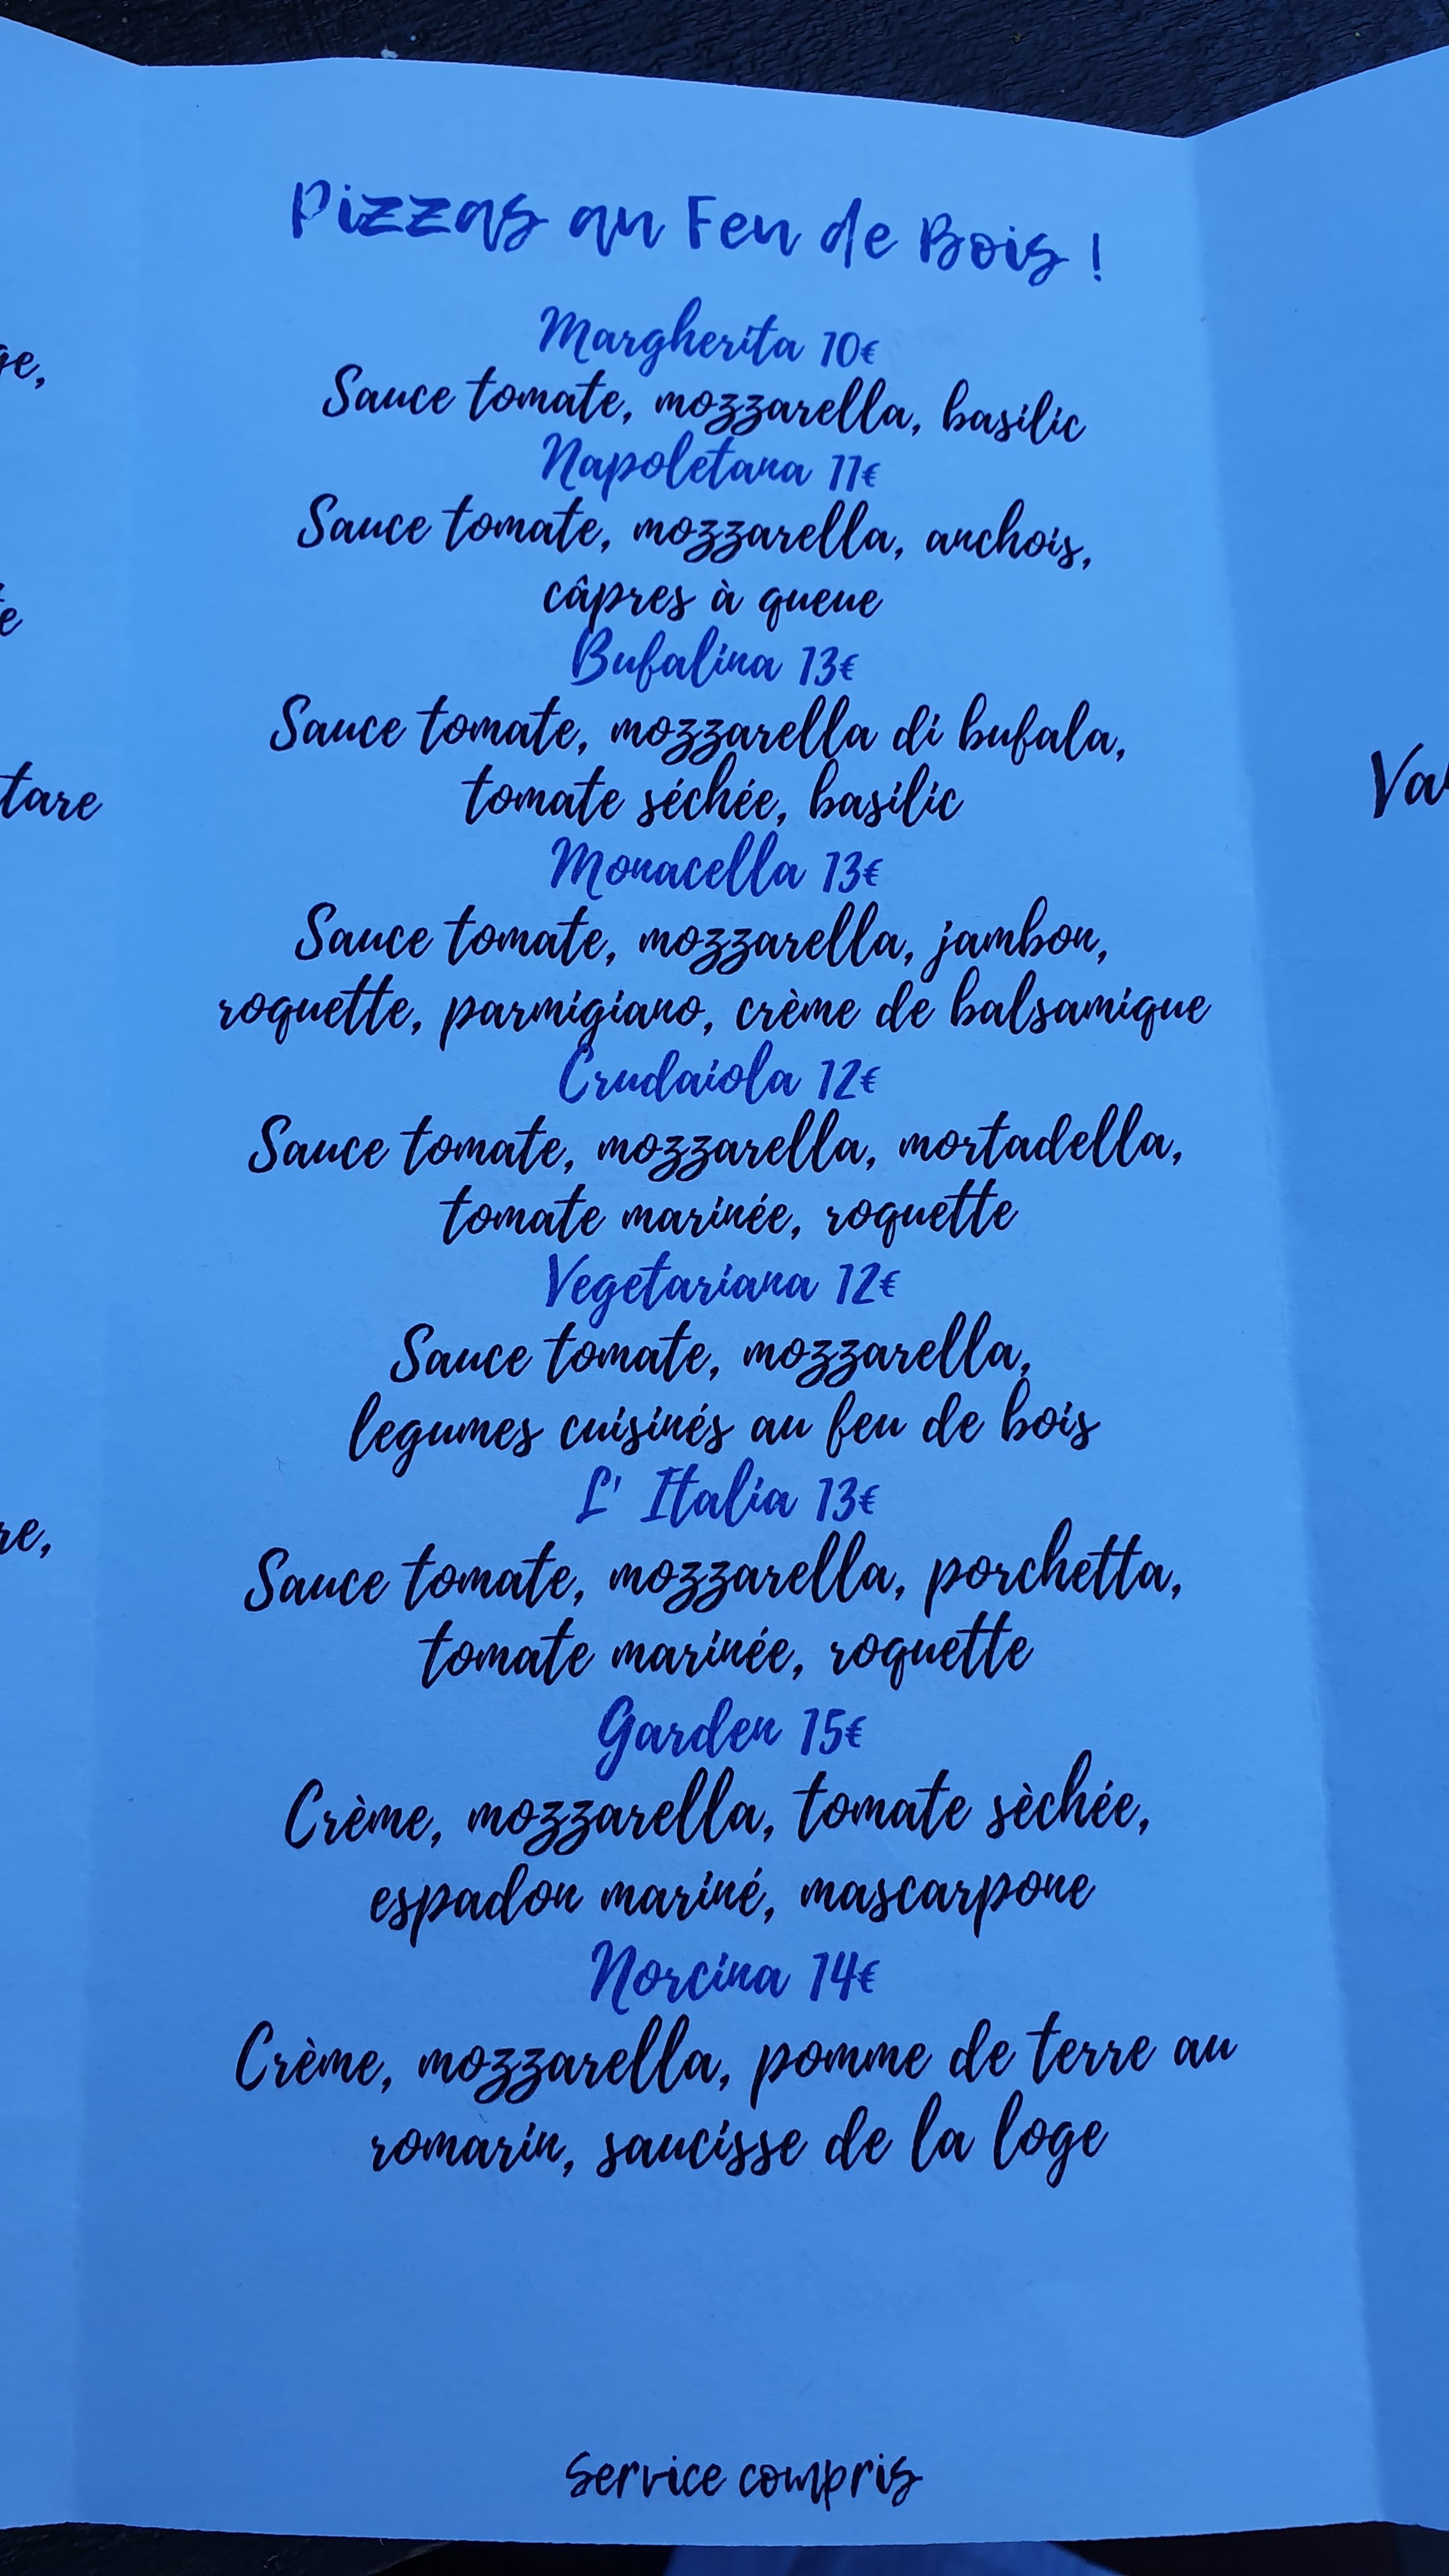 Pizzas au Feu de Bois !
Margherita 10€
Sauce tomate, mozzarella, basilic
Napoletana 11€
Sauce tomate, mozzarella, anchois,
câpres à queue
Bufalina 13€
Sauce tomate, mozzarella di bufala,
tomate séchée, basilic
Monacella 13€
Sauce tomate, mozzarella, jambon,
roquette, parmigiano, crème de balsamique
Crudaiola 12€
Sauce tomate, mozzarella, mortadella,
tomate marinée, roquette
Vegetariana 12€
Sauce tomate, mozzarella,
legumes cuisinés au feu de bois
L' Italia 13€
Sauce tomate, mozzarella, porchetta,
tomate marinée, roquette
Garden 15€
Crème, mozzarella, tomate sèchée,
espadon mariné, mascarpone
Norcina 14€
Crème, mozzarella, pomme de terre au
romarin, saucisse de la loge
Service compris